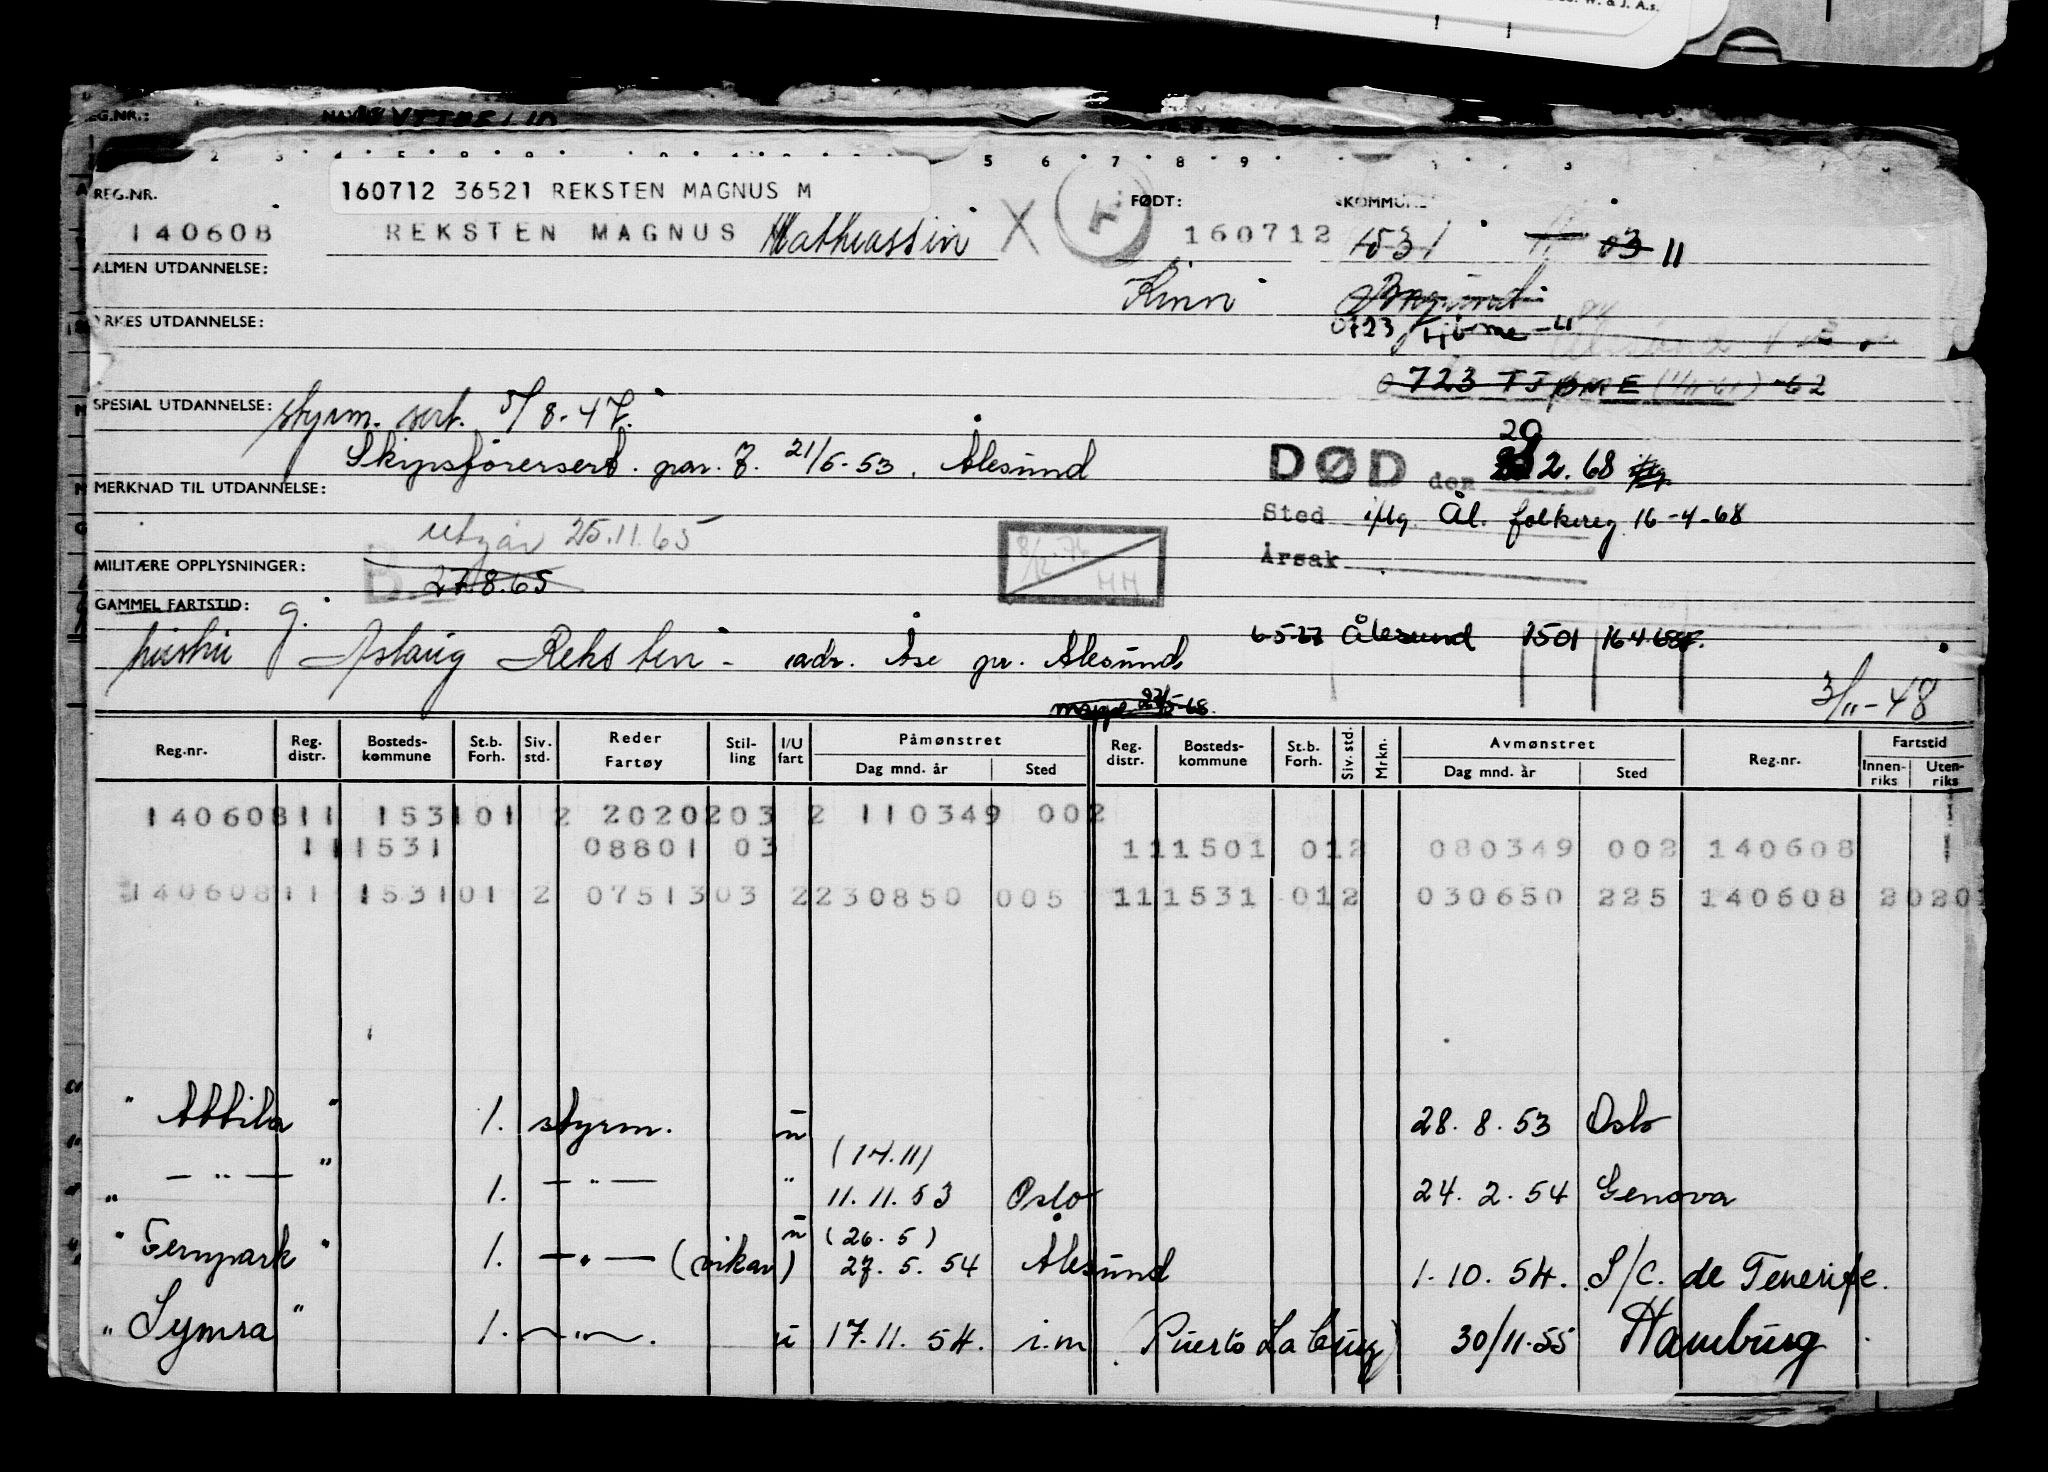 REG.NR.
160712 36521 REKSTEN MAGNUS M
FØDT:
KOMMUNE
140608 REKSTEN MAGNUS Mathiassen X 160712 1531 03 11
ALMEN UTDANNELSE:
Kinn
YRKES UTDANNELSE:
0723 Tjöme
0723 TJØME (1/11-61) -62
SPESIAL UTDANNELSE: styrm. sert. 5/8-47.
Skipsförersert. par. 7. 21/5-53, Ålesund
DØD den 20 2.68
MERKNAD TIL UTDANNELSE:
Sted i/flg. Ål. folkereg 16-4-68
Utgår 25.11.65
Årsak
MILITÆRE OPPLYSNINGER:
B 27.8.65
GAMMEL FARTSTID: g.
6-5-67 Ålesund 1501 16.4.68
hustru Aslaug Reksten - adr. Åse pr. Ålesund
3/11-48
mappe 22/5-68.
Reg.nr. Reg. distr. Bosteds-kommune St.b. Forh. Siv. std. Reder Fartøy Stil-ling I/U fart Påmønstret Dag mnd. år Sted Reg. distr. Bosteds-kommune St.b. Forh. Siv. std. Mrkn. Avmønstret Dag mnd. år Sted Reg.nr. Fartstid Innen-riks Uten-riks
140608 11 1531 01 2 20202 03 2 110349 002
11 1531 08801 03 11 1501 01 2 080349 002 140608
140608 11 1531 01 2 07513 03 2 230850 005 11 1531 01 2 030650 225 140608 20201
" Attila " 1. styrm. u 28. 8. 53 Oslo
(14.11)
" — " — " 1. — " — " 11. 11. 53 Oslo 24. 2. 54 Genova
(26. 5)
" Fernpark " 1. — " — (vikar) u 27. 5. 54 Ålesund 1. 10. 54. S/C. de Tenerife.
" Symra " 1. — " —. u 17. 11. 54. i.m (Puerto La Cruz) 30/11.55 Hamburg